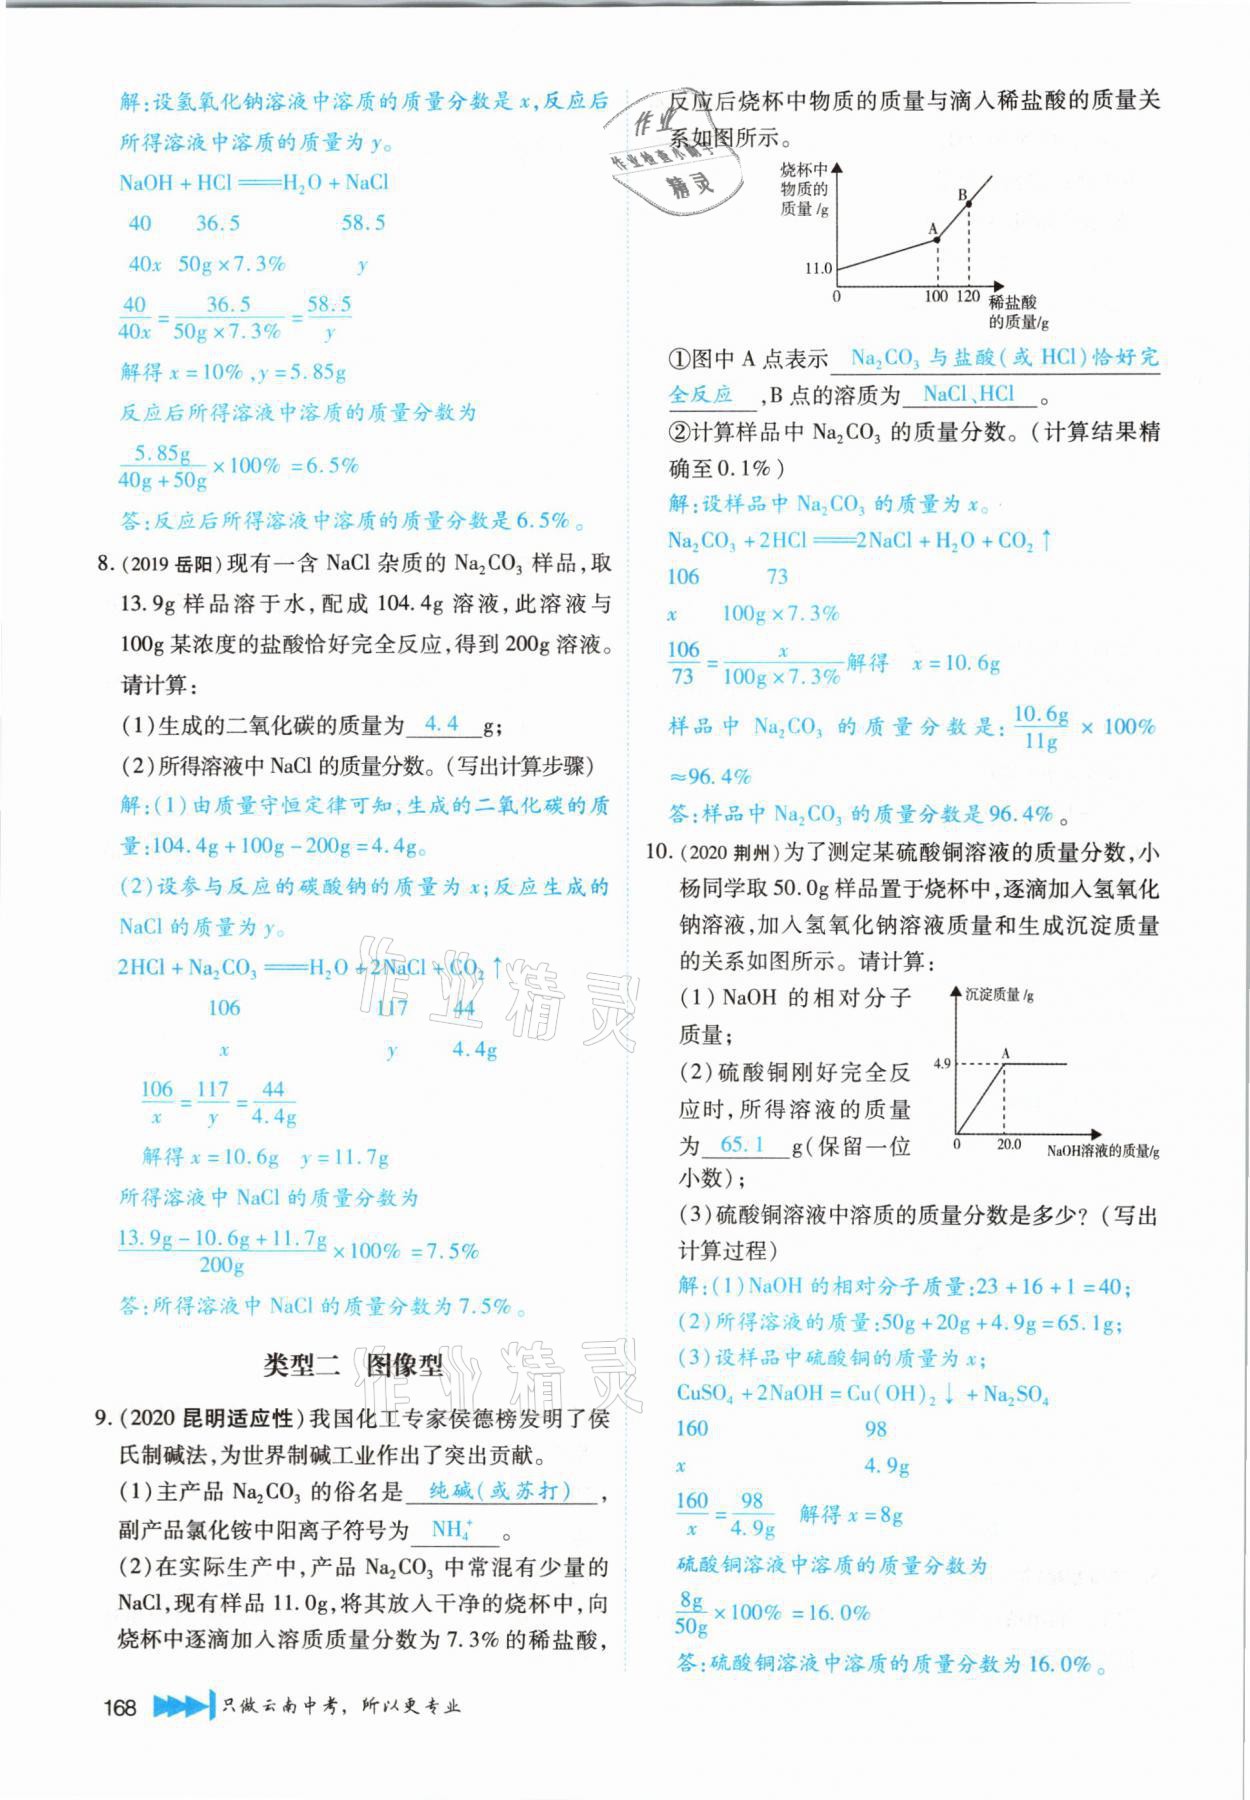 解:设氢氧化钠溶液中溶质的质量分数是 x,反应后
所得溶液中溶质的质量为 y。
NaOH + HCl ═══ H₂O + NaCl
40 36.5 58.5
40x 50g×7.3% y
40/40x = 36.5/(50g×7.3%) = 58.5/y
解得 x=10%,y=5.85g
反应后所得溶液中溶质的质量分数为
5.85g/(40g+50g) ×100% =6.5%
答:反应后所得溶液中溶质的质量分数是6.5%。
8. (2019 岳阳)现有一含 NaCl 杂质的 Na₂CO₃ 样品,取
13.9g 样品溶于水,配成 104.4g 溶液,此溶液与
100g 某浓度的盐酸恰好完全反应,得到 200g 溶液。
请计算:
(1)生成的二氧化碳的质量为 4.4 g;
(2)所得溶液中 NaCl 的质量分数。(写出计算步骤)
解:(1)由质量守恒定律可知,生成的二氧化碳的质
量:104.4g+100g-200g=4.4g。
(2)设参与反应的碳酸钠的质量为 x;反应生成的
NaCl 的质量为 y。
2HCl + Na₂CO₃ ═══ H₂O + 2NaCl + CO₂↑
106 117 44
x y 4.4g
106/x = 117/y = 44/4.4g
解得 x=10.6g y=11.7g
所得溶液中 NaCl 的质量分数为
(13.9g-10.6g+11.7g)/200g ×100% =7.5%
答:所得溶液中 NaCl 的质量分数为 7.5%。
类型二 图像型
9. (2020 昆明适应性)我国化工专家侯德榜发明了侯
氏制碱法,为世界制碱工业作出了突出贡献。
(1)主产品 Na₂CO₃ 的俗名是 纯碱(或苏打) ,
副产品氯化铵中阳离子符号为 NH₄⁺ 。
(2)在实际生产中,产品 Na₂CO₃ 中常混有少量的
NaCl,现有样品 11.0g,将其放入干净的烧杯中,向
烧杯中逐滴加入溶质质量分数为 7.3% 的稀盐酸,
168 只做云南中考,所以更专业
反应后烧杯中物质的质量与滴入稀盐酸的质量关
系如图所示。
烧杯中
物质的
质量/g
B
A
11.0
0 100 120 稀盐酸
的质量/g
①图中 A 点表示 Na₂CO₃ 与盐酸(或 HCl)恰好完
全反应 ,B 点的溶质为 NaCl、HCl 。
②计算样品中 Na₂CO₃ 的质量分数。(计算结果精
确至0.1%)
解:设样品中 Na₂CO₃ 的质量为 x。
Na₂CO₃ +2HCl ═══ 2NaCl + H₂O + CO₂↑
106 73
x 100g×7.3%
106/73 = x/(100g×7.3%) 解得 x=10.6g
样品中 Na₂CO₃ 的质量分数是: 10.6g/11g × 100%
≈96.4%
答:样品中 Na₂CO₃ 的质量分数是96.4%。
10. (2020 荆州)为了测定某硫酸铜溶液的质量分数,小
杨同学取 50.0g 样品置于烧杯中,逐滴加入氢氧化
钠溶液,加入氢氧化钠溶液质量和生成沉淀质量
的关系如图所示。请计算:
(1) NaOH 的相对分子
质量;
(2)硫酸铜刚好完全反
应时,所得溶液的质量
为 65.1 g(保留一位
小数);
沉淀质量/g
A
4.9
0 20.0 NaOH溶液的质量/g
(3)硫酸铜溶液中溶质的质量分数是多少?(写出
计算过程)
解:(1)NaOH 的相对分子质量:23+16+1=40;
(2)所得溶液的质量:50g+20g+4.9g=65.1g;
(3)设样品中硫酸铜的质量为 x;
CuSO₄ +2NaOH = Cu(OH)₂↓ + Na₂SO₄
160 98
x 4.9g
160/x = 98/4.9g 解得 x=8g
硫酸铜溶液中溶质的质量分数为
8g/50g ×100% =16.0%
答:硫酸铜溶液中溶质的质量分数为16.0%。
作业
精灵
作业精灵
作业精灵